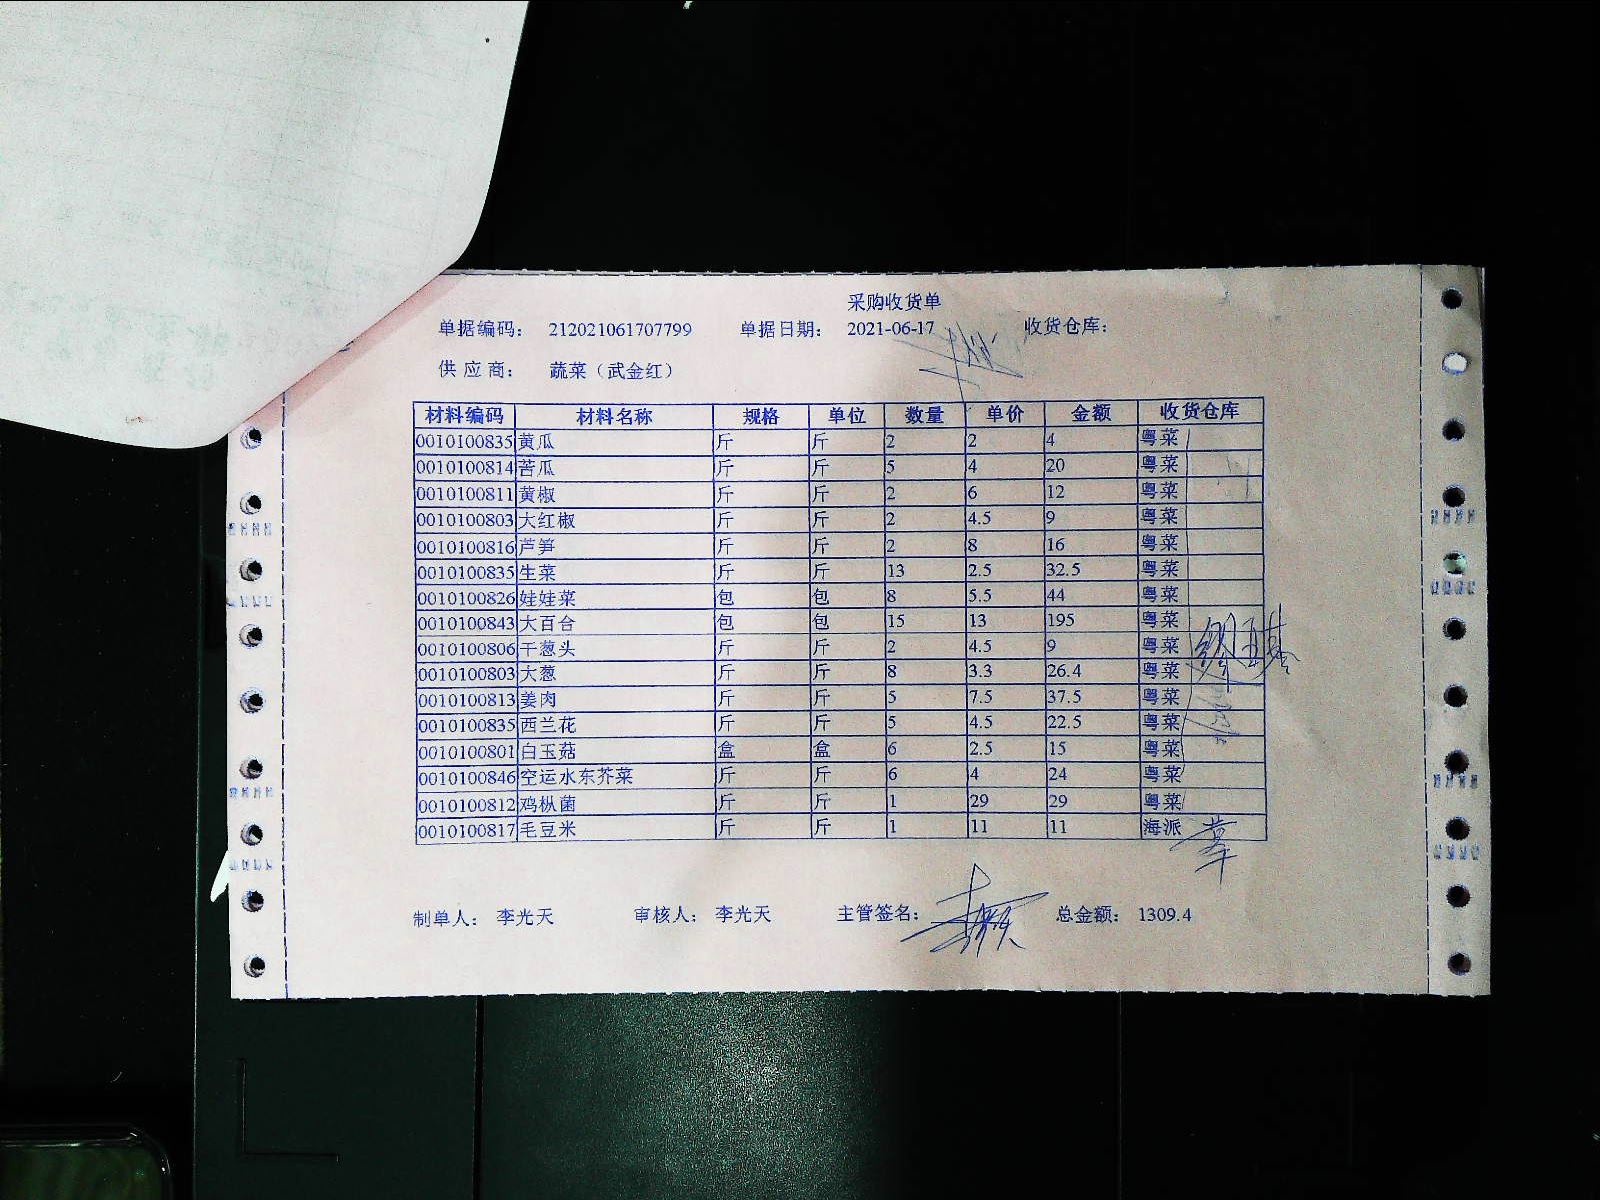 采购收货单
单据编码： 212021061707799 单据日期： 2021-06-17 收货仓库：
供 应 商： 蔬菜（武金红）
材料编码 材料名称 规格 单位 数量 单价 金额 收货仓库
0010100835 黄瓜 斤 斤 2 2 4 粤菜
0010100814 苦瓜 斤 斤 5 4 20 粤菜
0010100811 黄椒 斤 斤 2 6 12 粤菜
0010100803 大红椒 斤 斤 2 4.5 9 粤菜
0010100816 芦笋 斤 斤 2 8 16 粤菜
0010100835 生菜 斤 斤 13 2.5 32.5 粤菜
0010100826 娃娃菜 包 包 8 5.5 44 粤菜
0010100843 大百合 包 包 15 13 195 粤菜
0010100806 干葱头 斤 斤 2 4.5 9 粤菜
0010100803 大葱 斤 斤 8 3.3 26.4 粤菜
0010100813 姜肉 斤 斤 5 7.5 37.5 粤菜
0010100835 西兰花 斤 斤 5 4.5 22.5 粤菜
0010100801 白玉菇 盒 盒 6 2.5 15 粤菜
0010100846 空运水东芥菜 斤 斤 6 4 24 粤菜
0010100812 鸡枞菌 斤 斤 1 29 29 粤菜
0010100817 毛豆米 斤 斤 1 11 11 海派
制单人： 李光天 审核人： 李光天 主管签名： 总金额： 1309.4